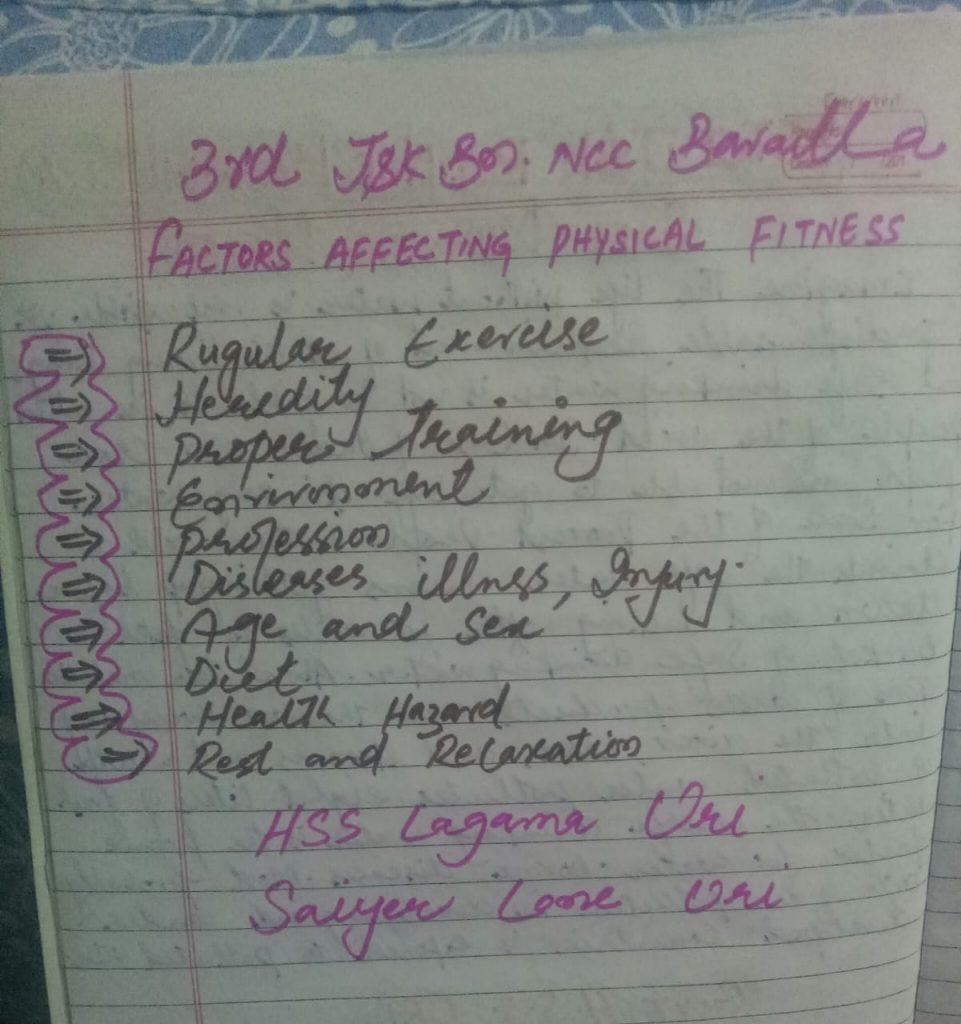 3rd J&K Bn. NCC Baramulla
FACTORS AFFECTING PHYSICAL FITNESS
⇒ Rugular Exercise
⇒ Heredity
⇒ Proper Training
⇒ Environment
⇒ Profession
⇒ Diseases illness, Injury.
⇒ Age and Sex
⇒ Diet
⇒ Health Hazard
⇒ Rest and Relaxation
HSS Lagama Uri
Uri